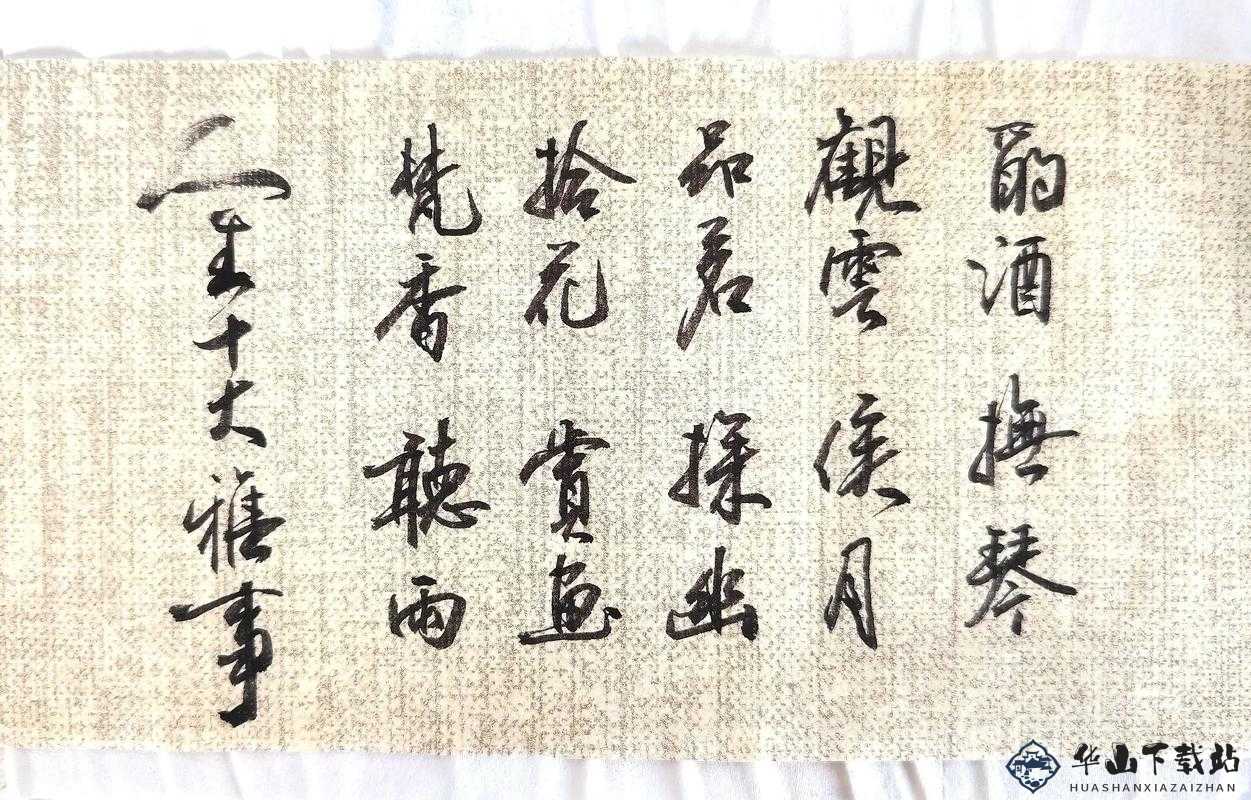 酌酒 撫琴
觀雲 侯月
品茗 探幽
拾花 賞畫
梵香 聽雨
人生十大雅事
华山下载站
HUASHANXIAZAIZHAN